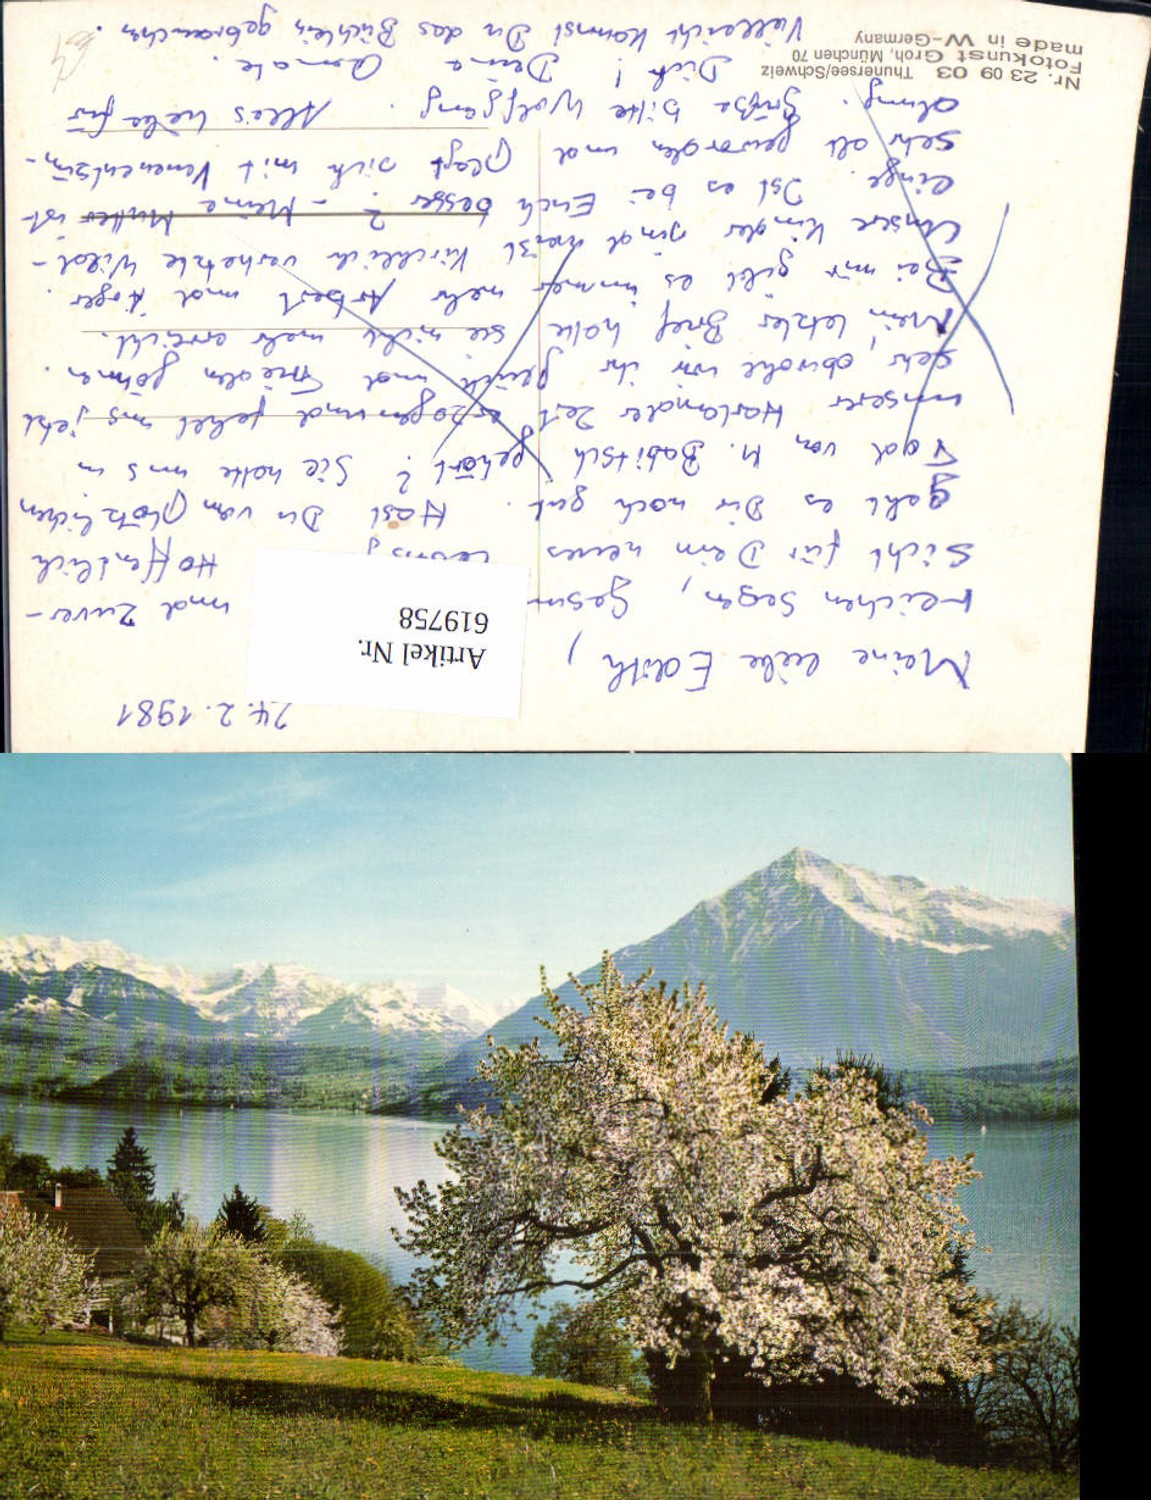 24.2.1981
Meine liebe Edith,
reichen Segen, Gesun- und Zuver-
sicht für Dein neues Lebens Hoffentlich
geht es Dir noch gut. Hast Du vom plötzlichen
Tod von H. Babitsch gehört? Sie hatte uns in
unserer Harlander Zeit erzogen und fehlt uns jetzt
sehr, obwohl wir ihr Glück und Frieden gönnen.
Mein letzter Brief hatte sie nicht mehr erreicht.
Bei mir gibt es immer mehr Arbeit und Ärger.
Unsere Kinder sind kirchlich verhetzte Wild-
linge. Ist es bei Euch besser? - Meine Mutter ist
sehr alt geworden und plagt sich mit Venenentzün-
dung. Grüße bitte Wolfgang. Alles Liebe für
Dich! Deine
Vielleicht kannst Du das Büchlein gebrauchen.
Artikel Nr.
619758
Nr. 23 09 03 Thunersee/Schweiz
Fotokunst Groh, München 70
made in W-Germany